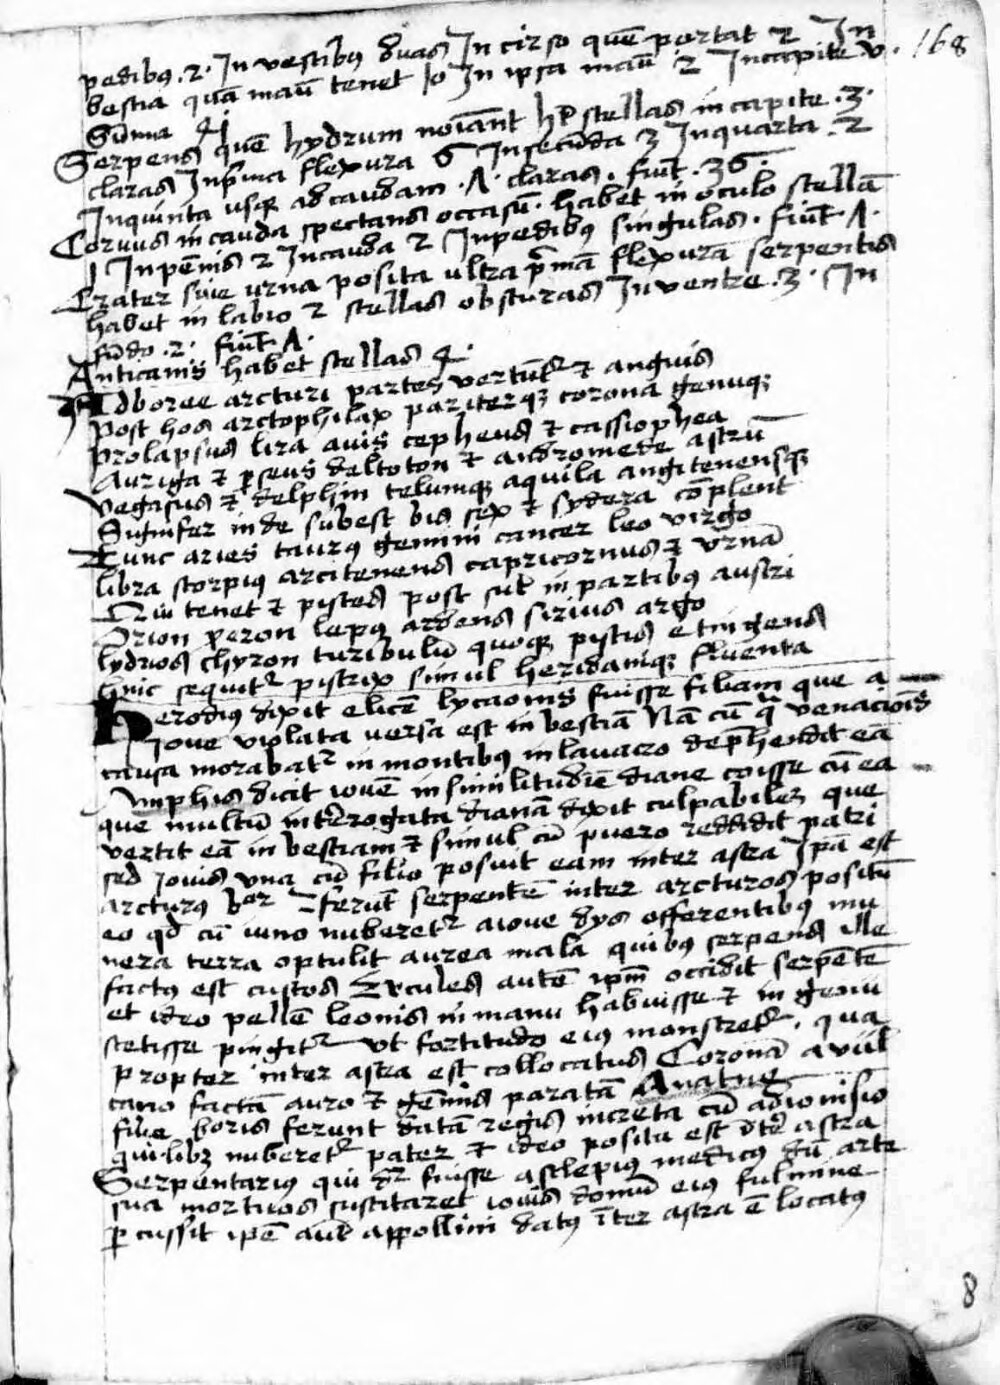 168
pedibus .2. In vestibus duas In cirso quē portat 2 In
bestia quā manū tenet Io In ipsa manū 2 In capite v.
Sūma
Serpens quē hydrum noiānt hꝫ stellas in capite .3.
claras In prima flexura 6 In secunda 3 In quarta .2
In quinta usqꝫ ad caudam .Λ. claras. fiūt .36.
Coruus in cauda spectans occasū. habet in oculo stellā
1 In pēnis 2 In cauda 2 In pedibus singulas. fiūt Λ.
Crater siue urna posita ultra prīmā flexurā serpentis
habet in labio 2 stellas obscuras In uentre .3. In
fūdo .2. fiūt Λ.
Anticanis habet stellas
Ad boree arcturi partes vertūtr et anguis
Post hos arctophilax pariterqꝫ corona genuqꝫ
Prolapsus lira auis cepheus et cassiophea
Auriga et perseus deltoton et andromede astrū
Pegasus et delphin telumqꝫ aquila angitenensqꝫ
Signifer inde subest bis sex et sydera cōplent
Tunc aries taurus gemini cancer leo virgo
libra scorpius arcitenens capricornus et vrnā
Qui tenet et pisces post sūt in partibus austri
Orion procion lepus ardens sirius argo
hydros chyron turibulū quoqꝫ piscis et ingens
hinc sequitr pistrix simul heridanique fluenta
Herodius dixit elicē lycaonis fuisse filiam que a
ioue violata uersa est in bestiā Nā cū venacionis
causa morabatr in montibus in lauacro deprehendit eā
Amphis dicit iouē in similitudinē diane coisse cū ea
que multū interrogata dianā dixit culpabilē que
vertit eā in bestiam et simul cū puero reddidit patri
sed Iouis una cū filio posuit eam inter astra Ipā est
arcturus ferūt serpentē inter arcturos positū
eo qd cū iuno nuberetr a ioue dys offerentibus mu
nera terra optulit aurea mala quibus serpens ille
factus est custos Ercules autē ipm occidit serpētē
et ideo pellē leonis in manu habuisse et in genu
stetisse pingitr vt fortitudo eius monstretr. qua
propter inter astra est collocatus Coronā a vul
cano factā auro et gēmis paratā
filie ferunt datā regis creta cū adionisio
nuberetr pater et ideo posita est inter astra
Serpentarius qui dr fuisse asclepius medicus dū arte
sua mortuos suscitaret iouis domū eius fulmine
percussit ipē aūt appollini datus īter astra ē locatus
8